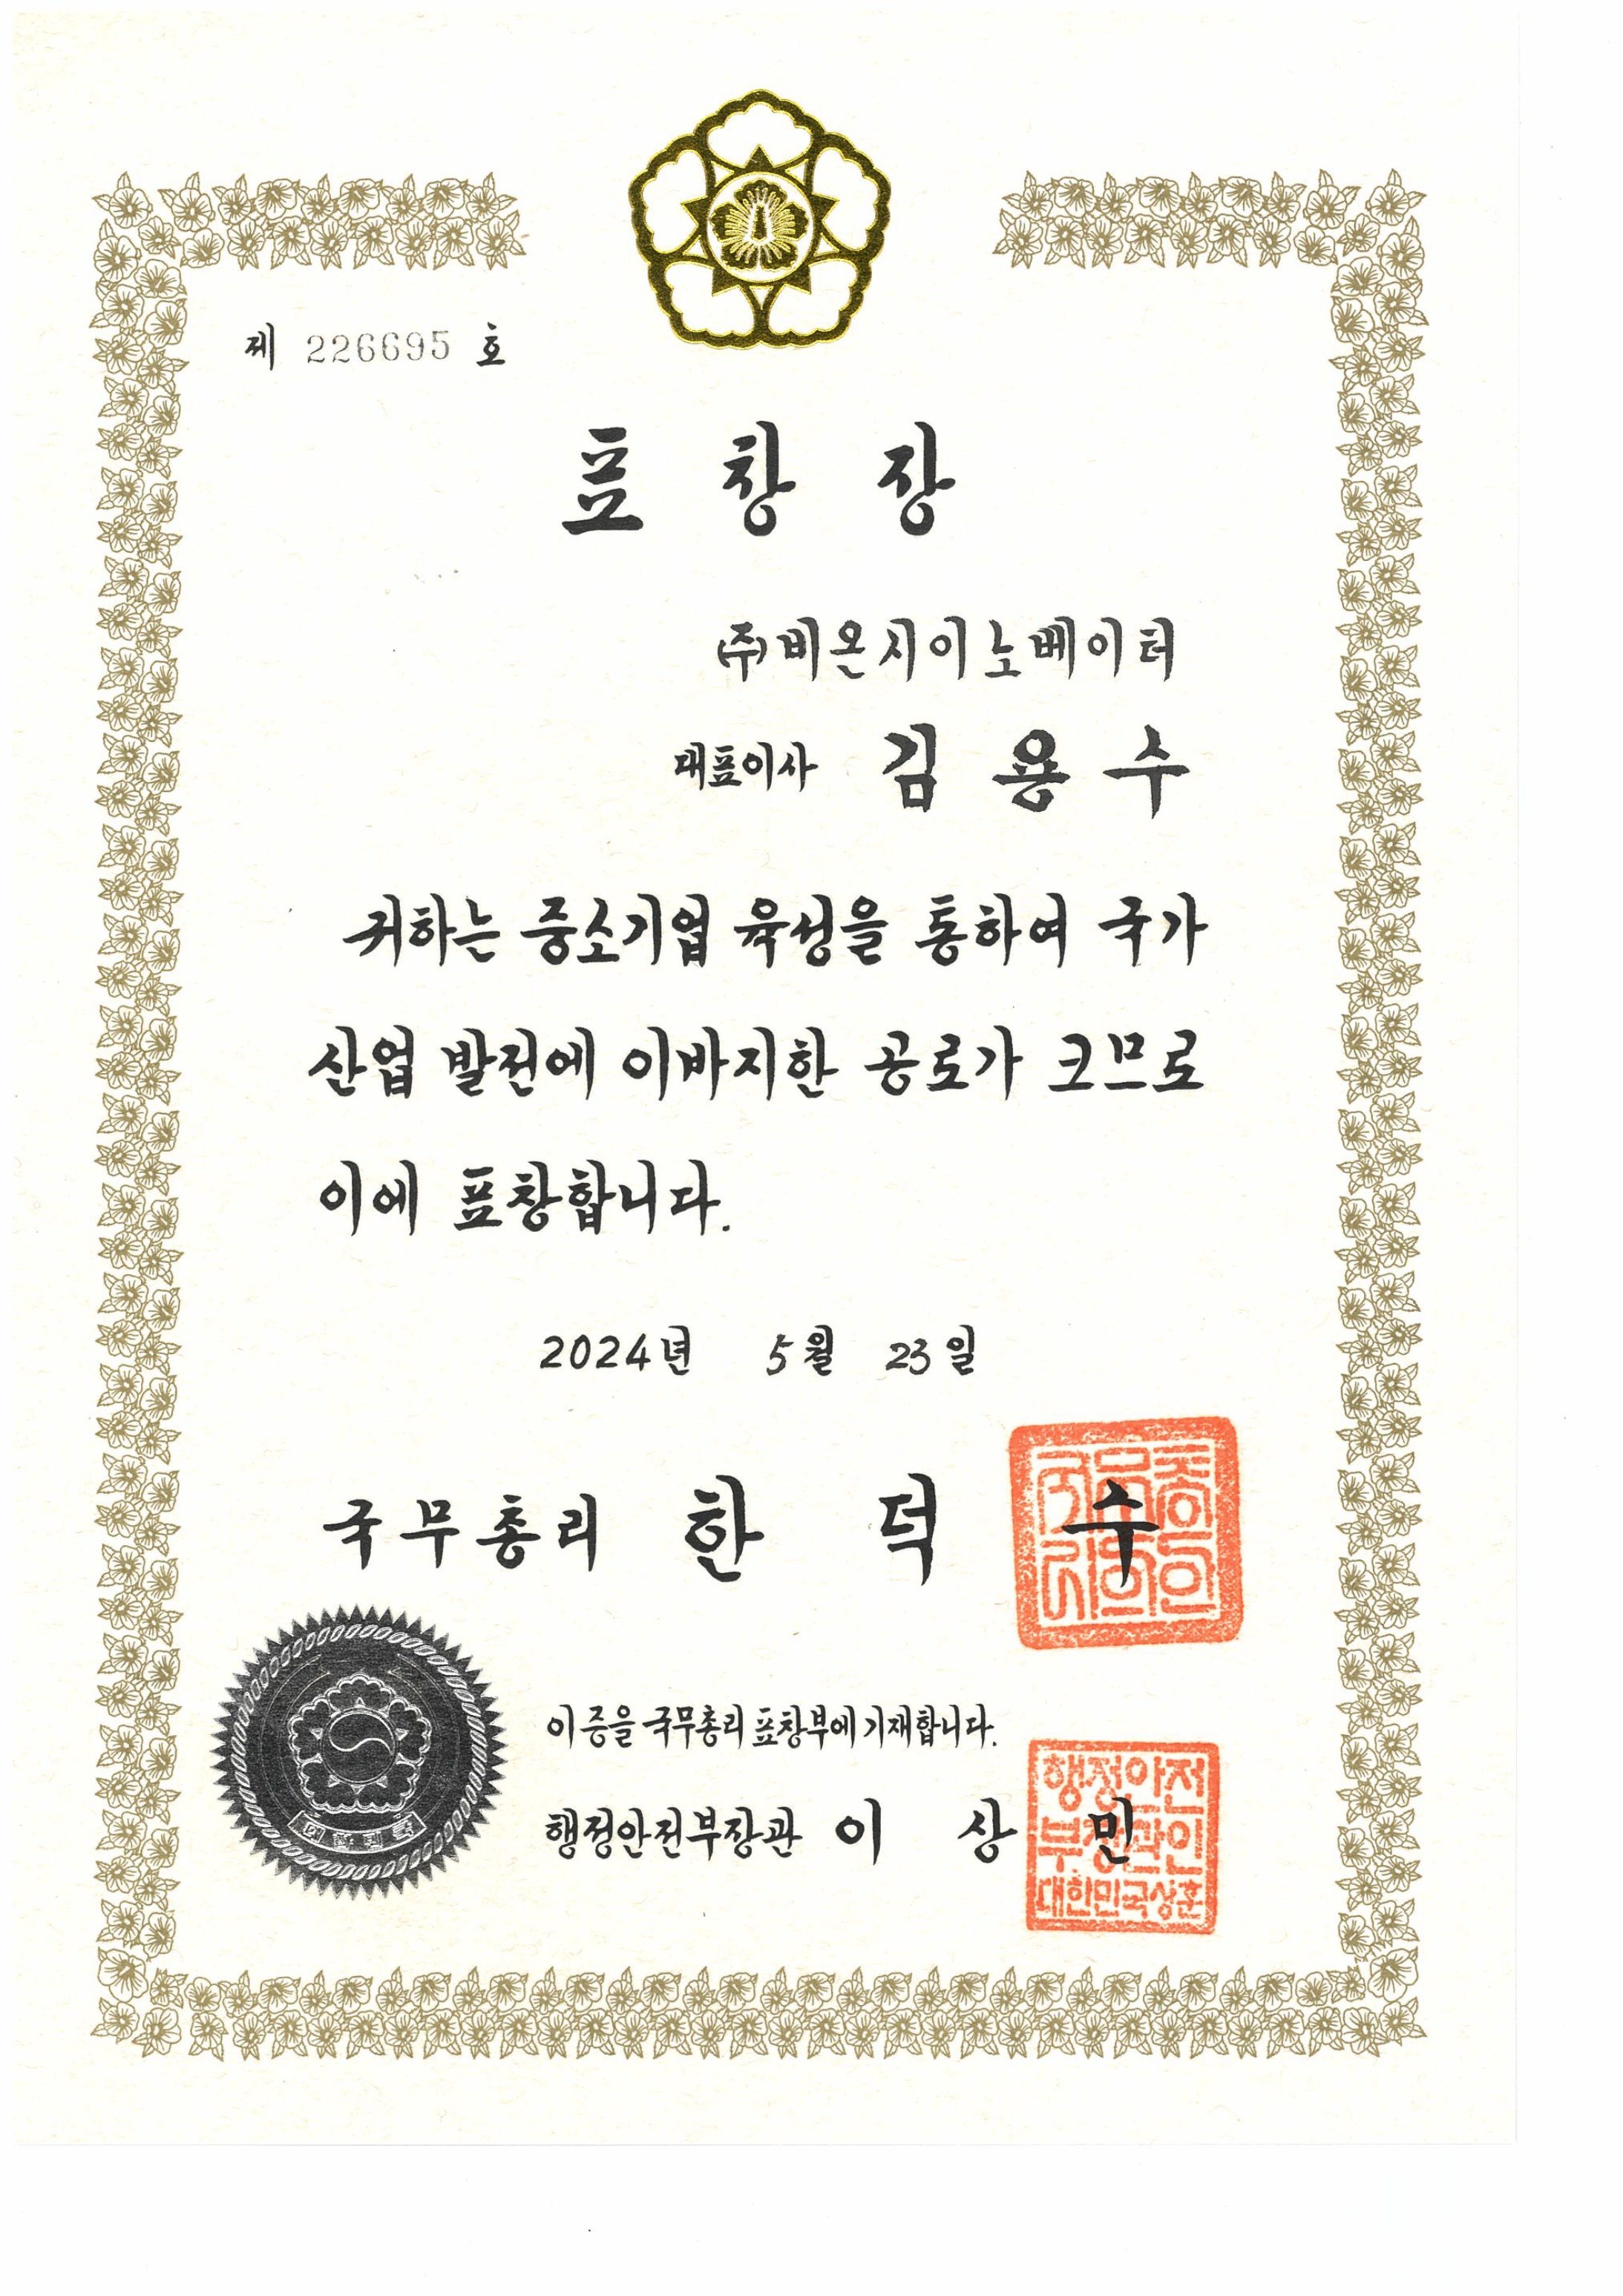 제 226695 호
표 창 장
(주)비온시이노베이터
대표이사 김 용 수
귀하는 중소기업 육성을 통하여 국가
산업 발전에 이바지한 공로가 크므로
이에 표창합니다.
2024년 5월 23일
국무총리 한 덕 수
국무총리의인
이 증을 국무총리 표창부에 기재합니다.
행정안전부장관 이 상 민
행정안전
부장관인
대한민국상훈
대한민국